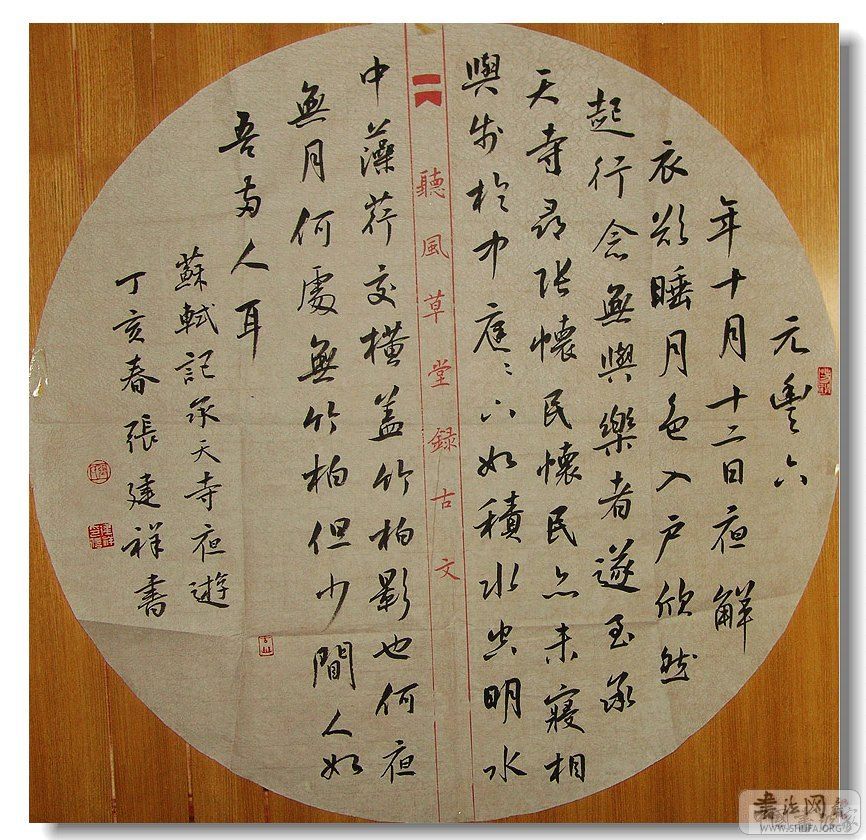 元豐六
年十月十二日夜解
衣欲睡月色入户欣然
起行念無與樂者遂至承
天寺尋張懷民懷民亦未寢相
與步於中庭〻下如積水空明水
聽風草堂録古文
中藻荇交橫蓋竹柏影也何夜
無月何處無竹柏但少間人如
吾兩人耳
蘇軾記承天寺夜遊
丁亥春張建祥書
书法网
WWW.SHUFA.ORG